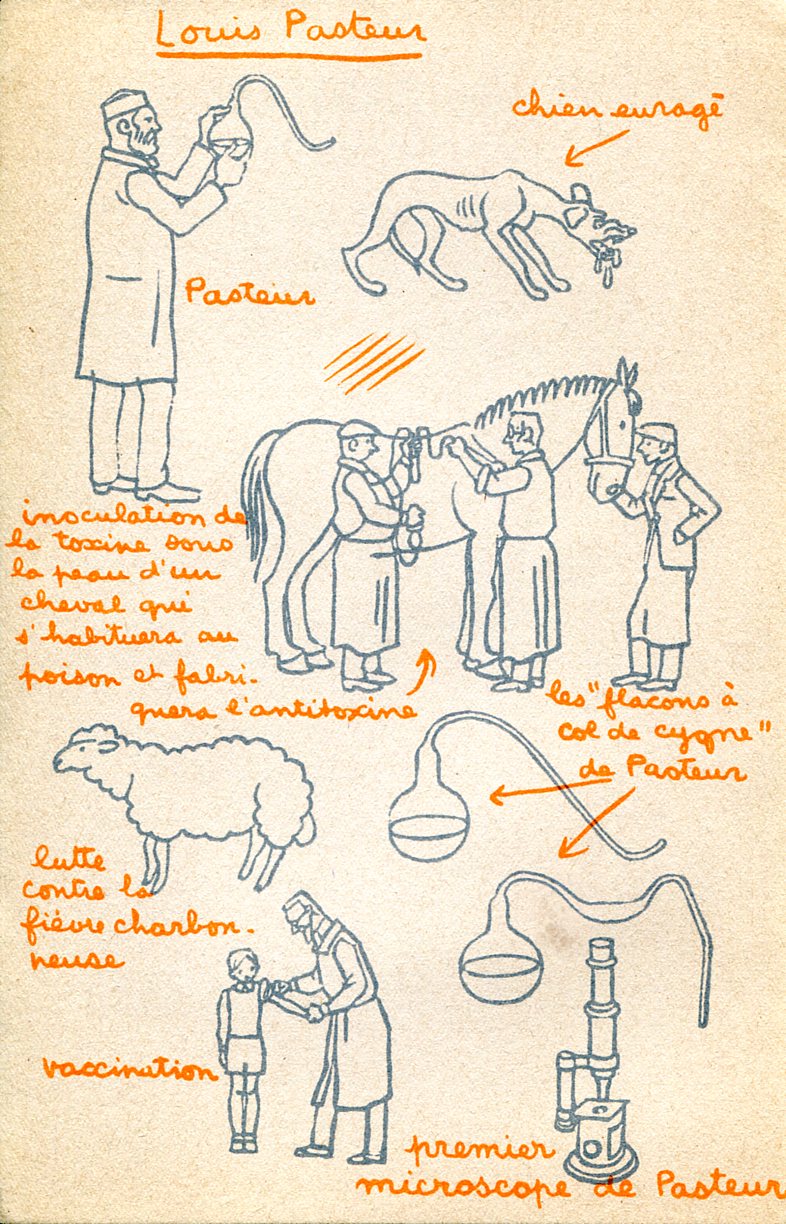 Louis Pasteur
chien enragé
Pasteur
inoculation de
la toxine sous
la peau d'un
cheval qui
s'habituera au
poison et fabri-
quera l'antitoxine
les "flacons à
col de cygne"
de Pasteur
lutte
contre la
fièvre charbon-
neuse
vaccination
premier
microscope de Pasteur